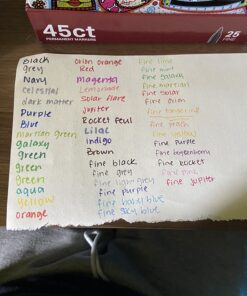 45ct
PERMANENT MARKERS
25
FINE
Black
grey
Navy
Celestial
dark matter
Purple
Blue
Martian green
galaxy
green
green
Green
aqua
yellow
orange
Orion orange
Red
Magenta
Lemonade
Solar flare
jupiter
Rocket feul
Lilac
indigo
Brown
fine black
fine grey
fine light grey
fine purple
fine baby blue
fine sky blue
fine lime
fine mint
fine galaxy
fine martian
fine solar
fine plum
fine tangerine
fine peach
fine yellow
fine purple
fine boysenberry
fine rocket
fine pink
fine jupiter